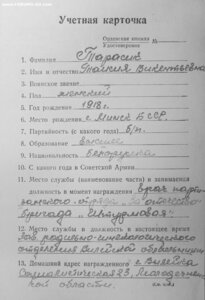 Учетная карточка
Орденская книжка
Удостоверение №
1. Фамилия Тарасик
2. Имя и отчество Таисия Викентьевна
3. Воинское звание
4. Пол женский
5. Год рождения 1918 г.
6. Место рождения г. Минск БССР
7. Партийность (с какого года) б/п.
8. Образование высшее
9. Национальность белоруска
10. С какого года в Советской Армии
11. Место службы (наименование части) и занимаемая
должность в момент награждения врач парти-
занского отряда
бригада
12. Место службы и должность в настоящее время
Зав. родильно-гинекологического
отделения Вилейской
13. Домашний адрес награжденного г. Вилейка
Социалистическая 23, Молодечнен-
ской области.